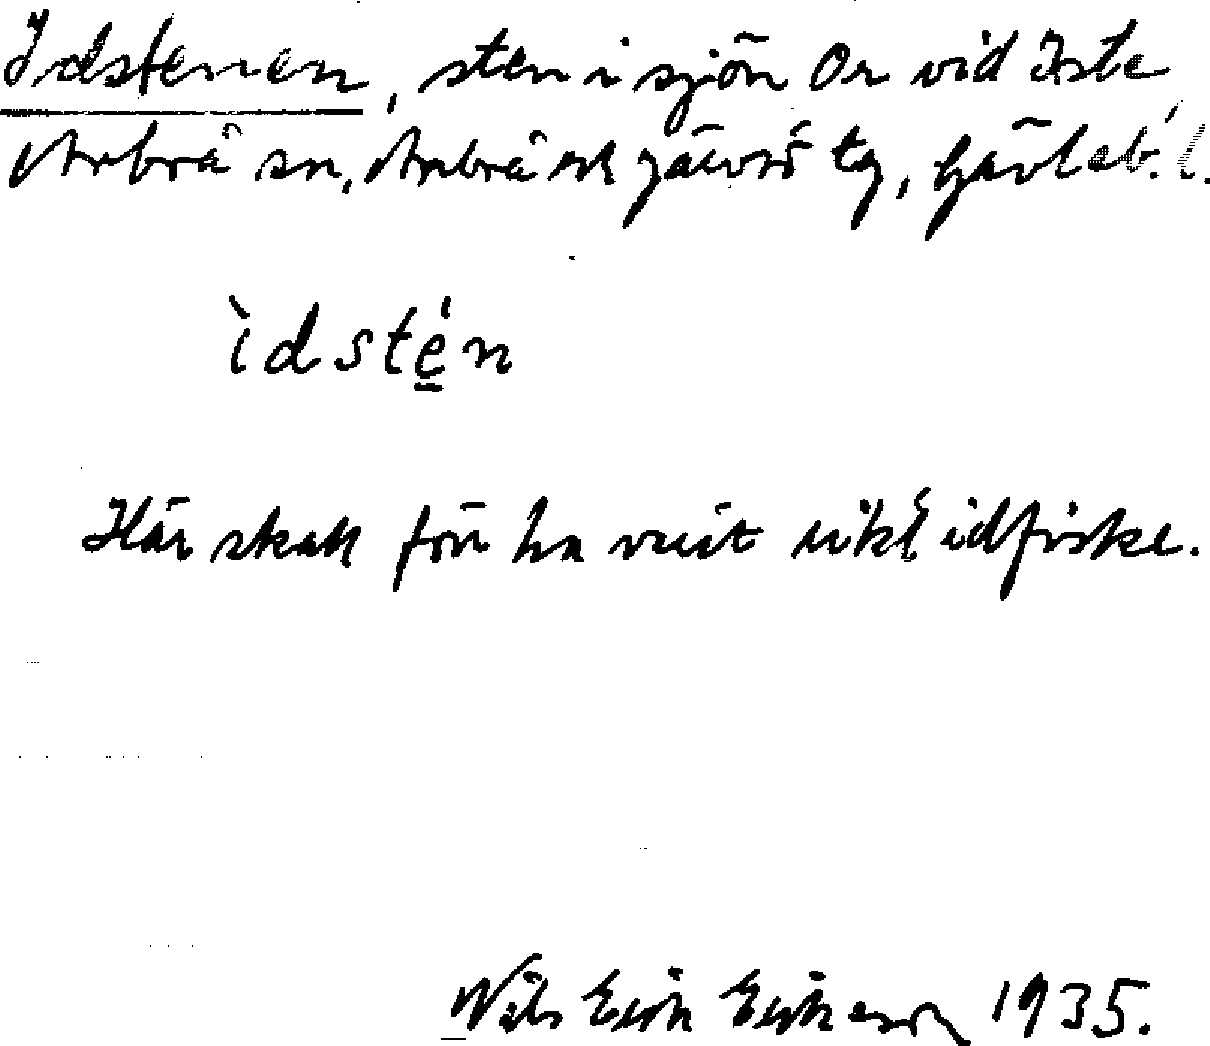 Idstenen, sten i sjön Or vid Iste
Arbrå sn, Arbrå och Järvsö tg, Gävleb. l.
ìdstén
Här skall förr ha varit rikt idfiske.
Nils Erik Eriksson 1935.